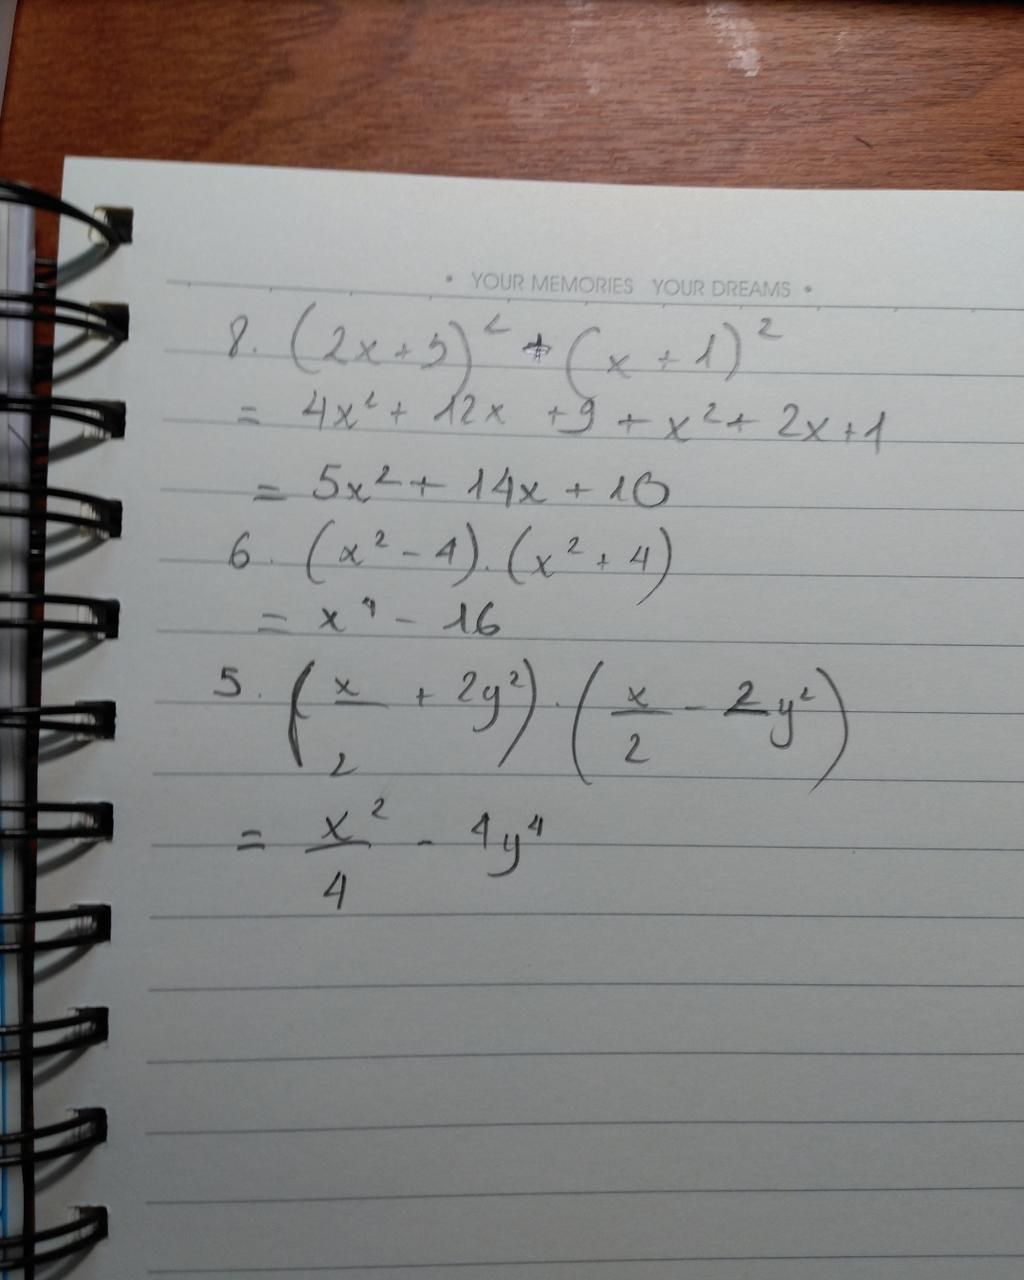 • YOUR MEMORIES YOUR DREAMS •
8. (2x+3)² + (x+1)²
= 4x² + 12x +9 + x² + 2x+1
= 5x² + 14x + 10
6. (x² - 4).(x² + 4)
= x⁴ - 16
5. (x/2 + 2y²).(x/2 - 2y²)
= x²/4 - 4y⁴